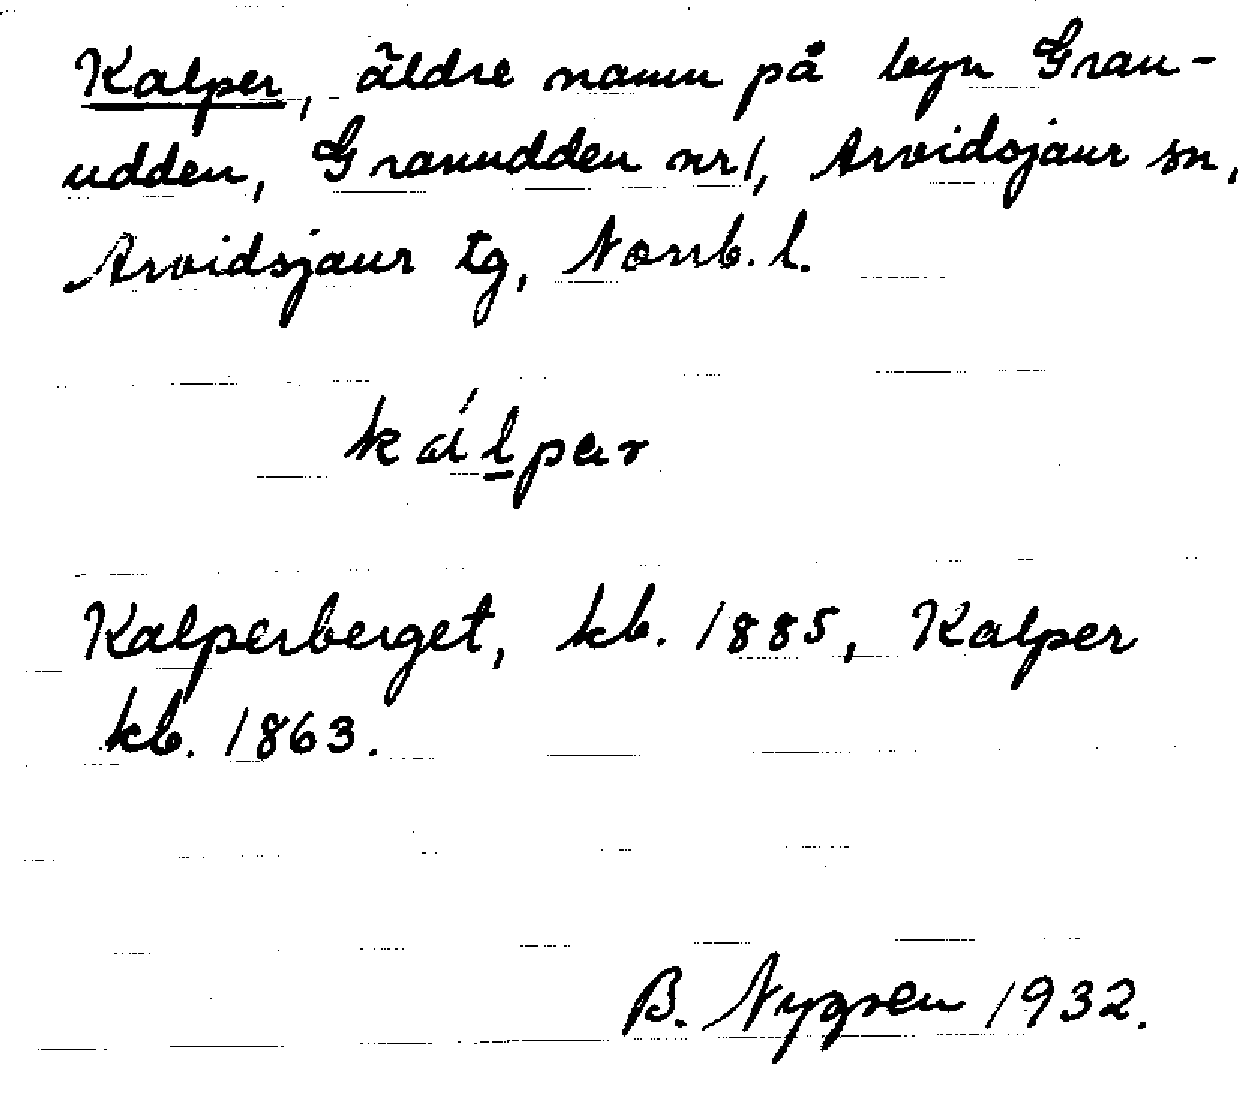 Kalper, äldre namn på byn Gran-
udden, Granudden nr 1, Arvidsjaur sn,
Arvidsjaur tg, Norrb. l.
kálpar
Kalperberget, kb. 1885, Kalper
kb. 1863.
B. Nygren 1932.